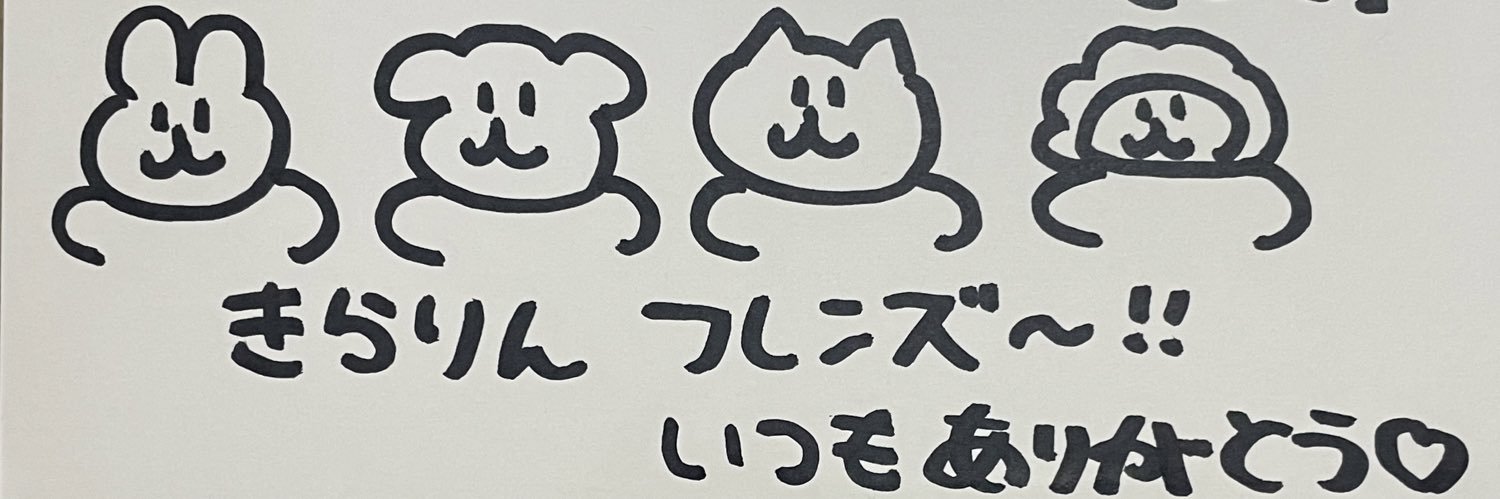 きらりん フレンズ〜!!
いつもありがとう♡